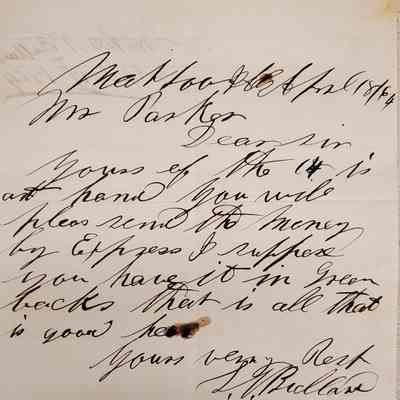 Mattoon Ill April 18/64
Mr Parker
Dear sir
Yours of the 14 is
at hand you will
pleas send the money
by Express I suppose
you have it in Green
backs that is all that
is good here
Yours very Resp